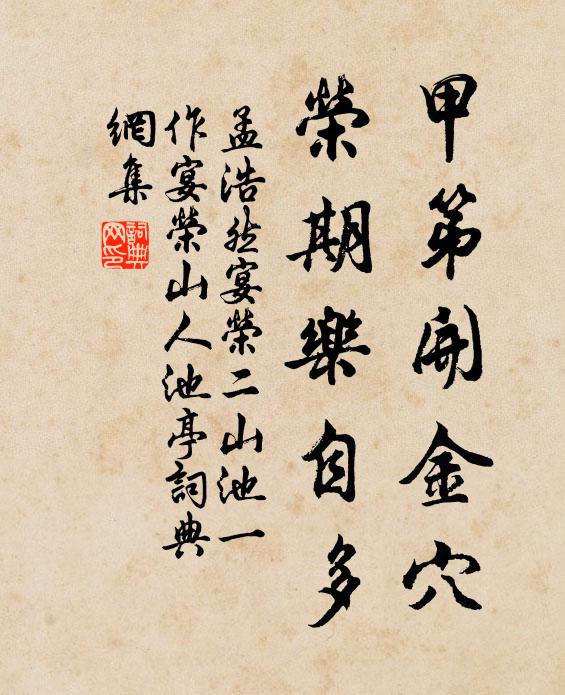 甲第開金穴
榮期樂自多
孟浩然宴榮二山池一
作宴榮山人池亭詞典
網集
詞典網印